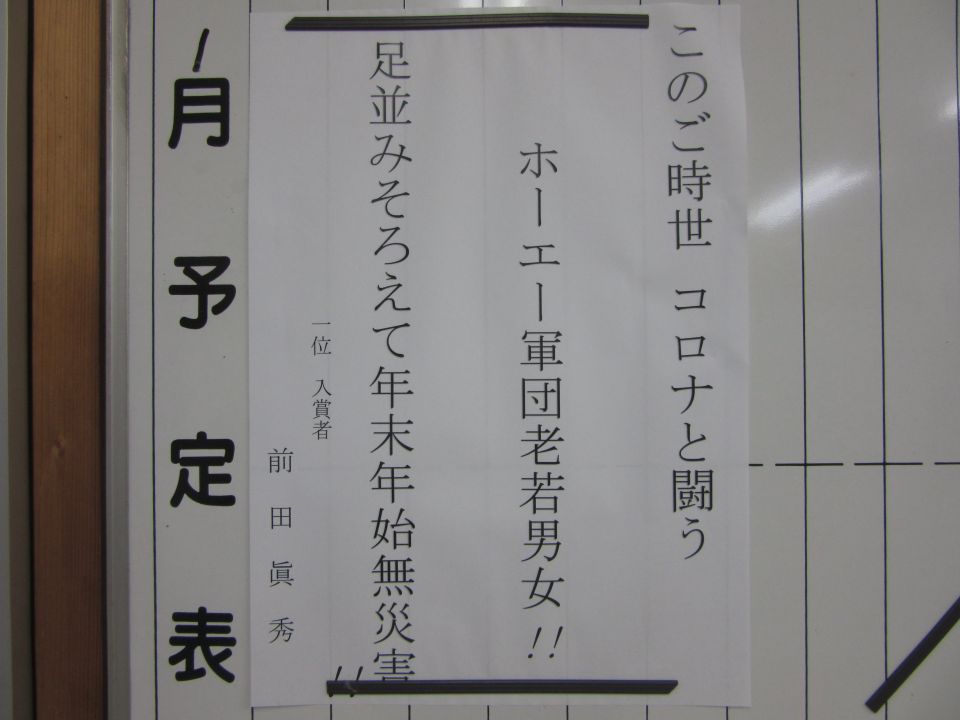 このご時世 コロナと闘う
ホーエー軍団老若男女!!
足並みそろえて年末年始無災害!!
一位 入賞者
前田眞秀
1月予定表